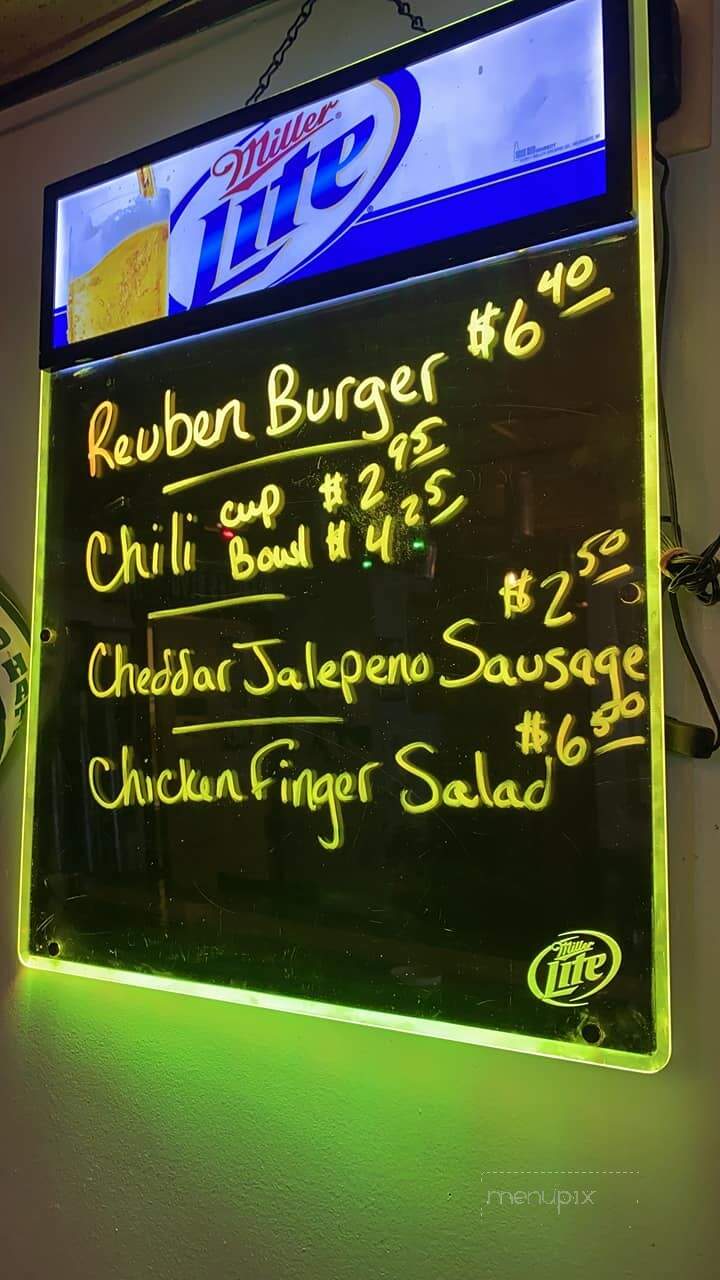 Miller
Lite
Reuben Burger $6 40
Chili cup $2 95
Bowl $4 25
$2 50
Cheddar Jalepeno Sausage
$6 50
Chicken Finger Salad
Miller
Lite
menupix